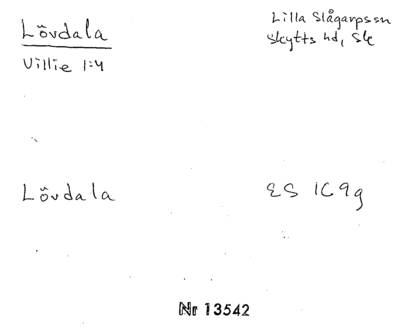 Lövdala
Lilla Slågarpssn
Villie 1:4
Skytts hd, Sk
Lövdala
ES 1C9g
Nr 13542